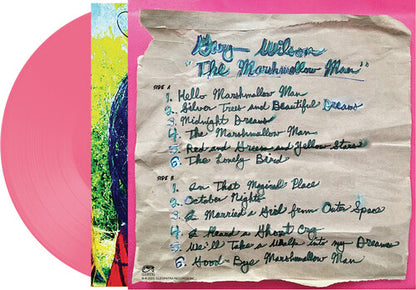 Gary Wilson
"The Marshmallow Man"
SIDE A
1. Hello Marshmallow Man
2. Silver Trees and Beautiful Dreams
3. Midnight Dreams
4. The Marshmallow Man
5. Red and Green and Yellow Stars
6. The Lonely Bird
SIDE B
1. In That Magical Place
2. October Nights
3. I Married a Girl from Outer Space
4. I Heard a Ghost Cry
5. We'll Take a Walk into my Dreams
6. Good-Bye Marshmallow Man